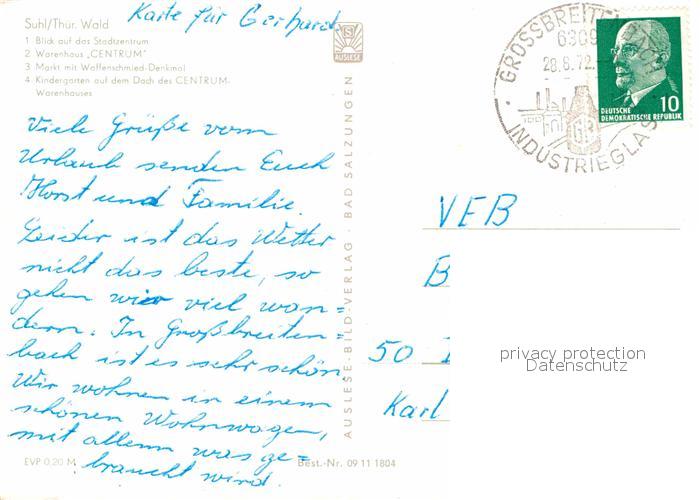 Karte für Gerhardt
Suhl/Thür. Wald
1 Blick auf das Stadtzentrum
2 Warenhaus „CENTRUM"
3 Markt mit Waffenschmied-Denkmal
4 Kindergarten auf dem Dach des CENTRUM-
Warenhauses
AUSLESE
GROSSBREITENBACH
6309
28.8.72
INDUSTRIEGLAS
10
DEUTSCHE
DEMOKRATISCHE REPUBLIK
Viele Grüße vom
Urlaub senden Euch
Horst und Familie.
Leider ist das Wetter
nicht das beste, so
gehen wir viel wan=
dern. In Großbreiten=
bach ist es sehr schön
Wir wohnen in einem
schönen Wohnwagen,
mit allem was ge=
braucht wird.
AUSLESE-BILD-VERLAG · BAD SALZUNGEN
VEB
B
50
Karl
privacy protection
Datenschutz
EVP 0,20 M
Best.-Nr. 09 11 1804